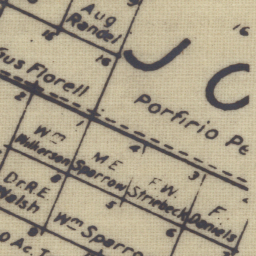 Aug
Randel
16
15
16
J C
Florell
Porfirio Pe
2
1
4
3
Wm
Mulkerson
M E
Sparrow
F. W.
Striebeck
F.
Daniels
Dr. R. E.
Walsh
5
6
Wm Sparro
Ac. T.